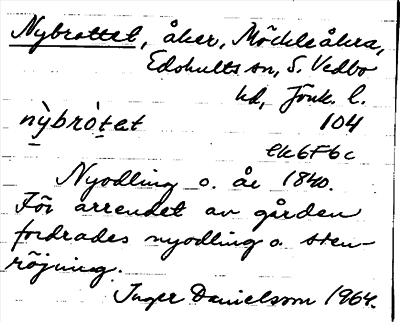 Nybrottet, åker, Möckleåkra,
Edshults sn, S. Vedbo
hd, Jönk. l.
nỳbrò̱tet 104
ek6F6c
Nyodling o. år 1840.
För arrendet av gården
fordrades nyodling o. sten-
röjning.
Inger Danielsson 1964.